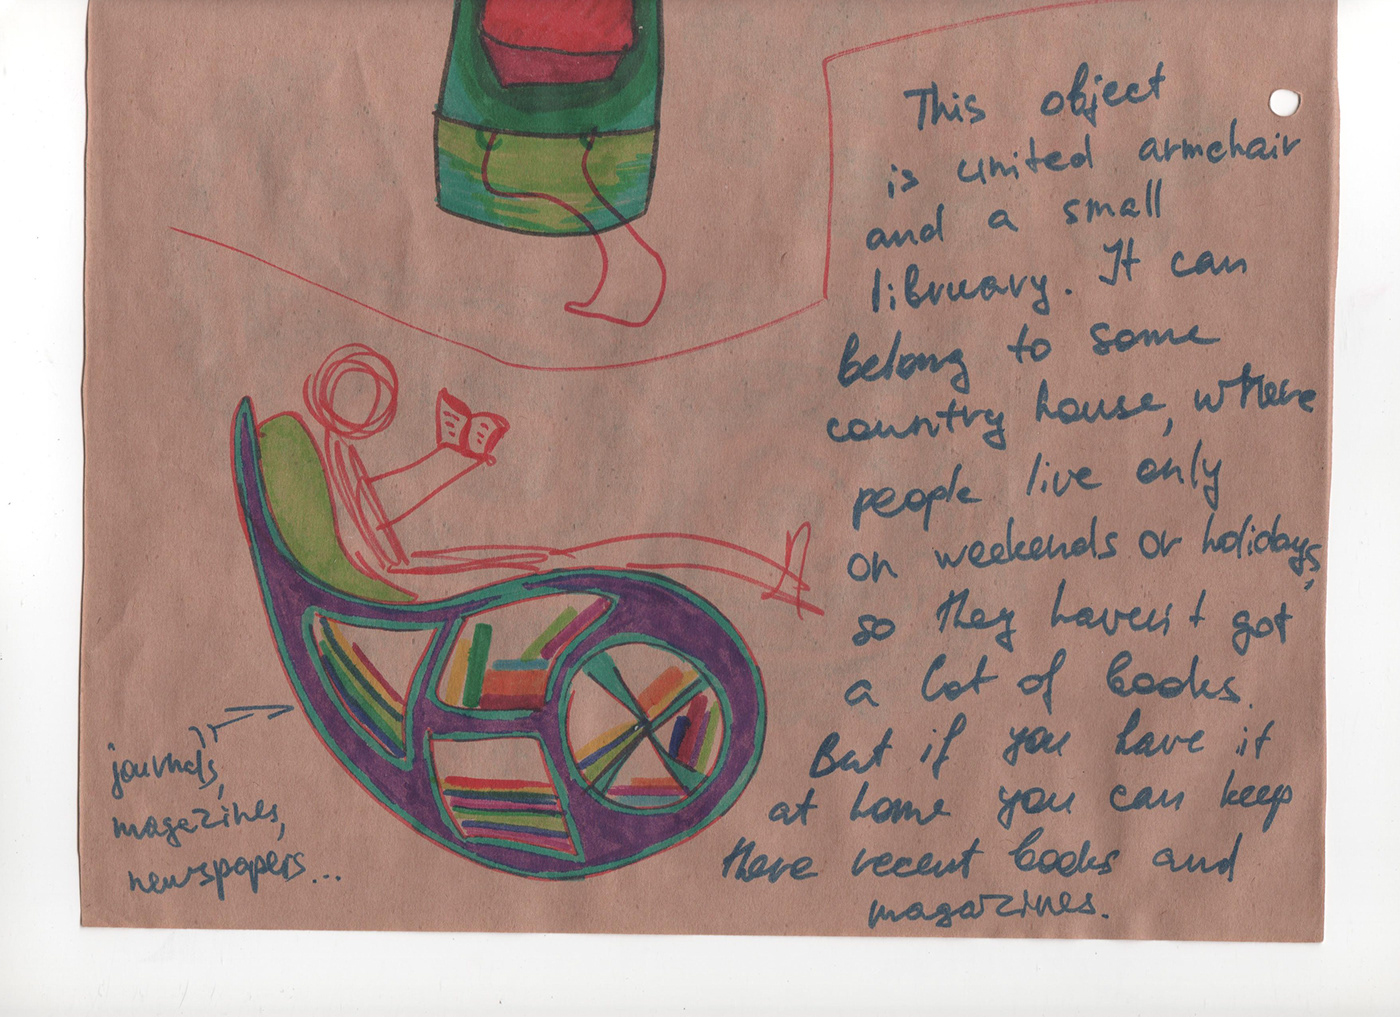 This object
is united armchair
and a small
library. It can
belong to some
country house, where
people live only
on weekends or holidays,
so they haven't got
a lot of books.
But if you have it
at home you can keep
there recent books and
magazines.
journals,
magazines,
newspapers...